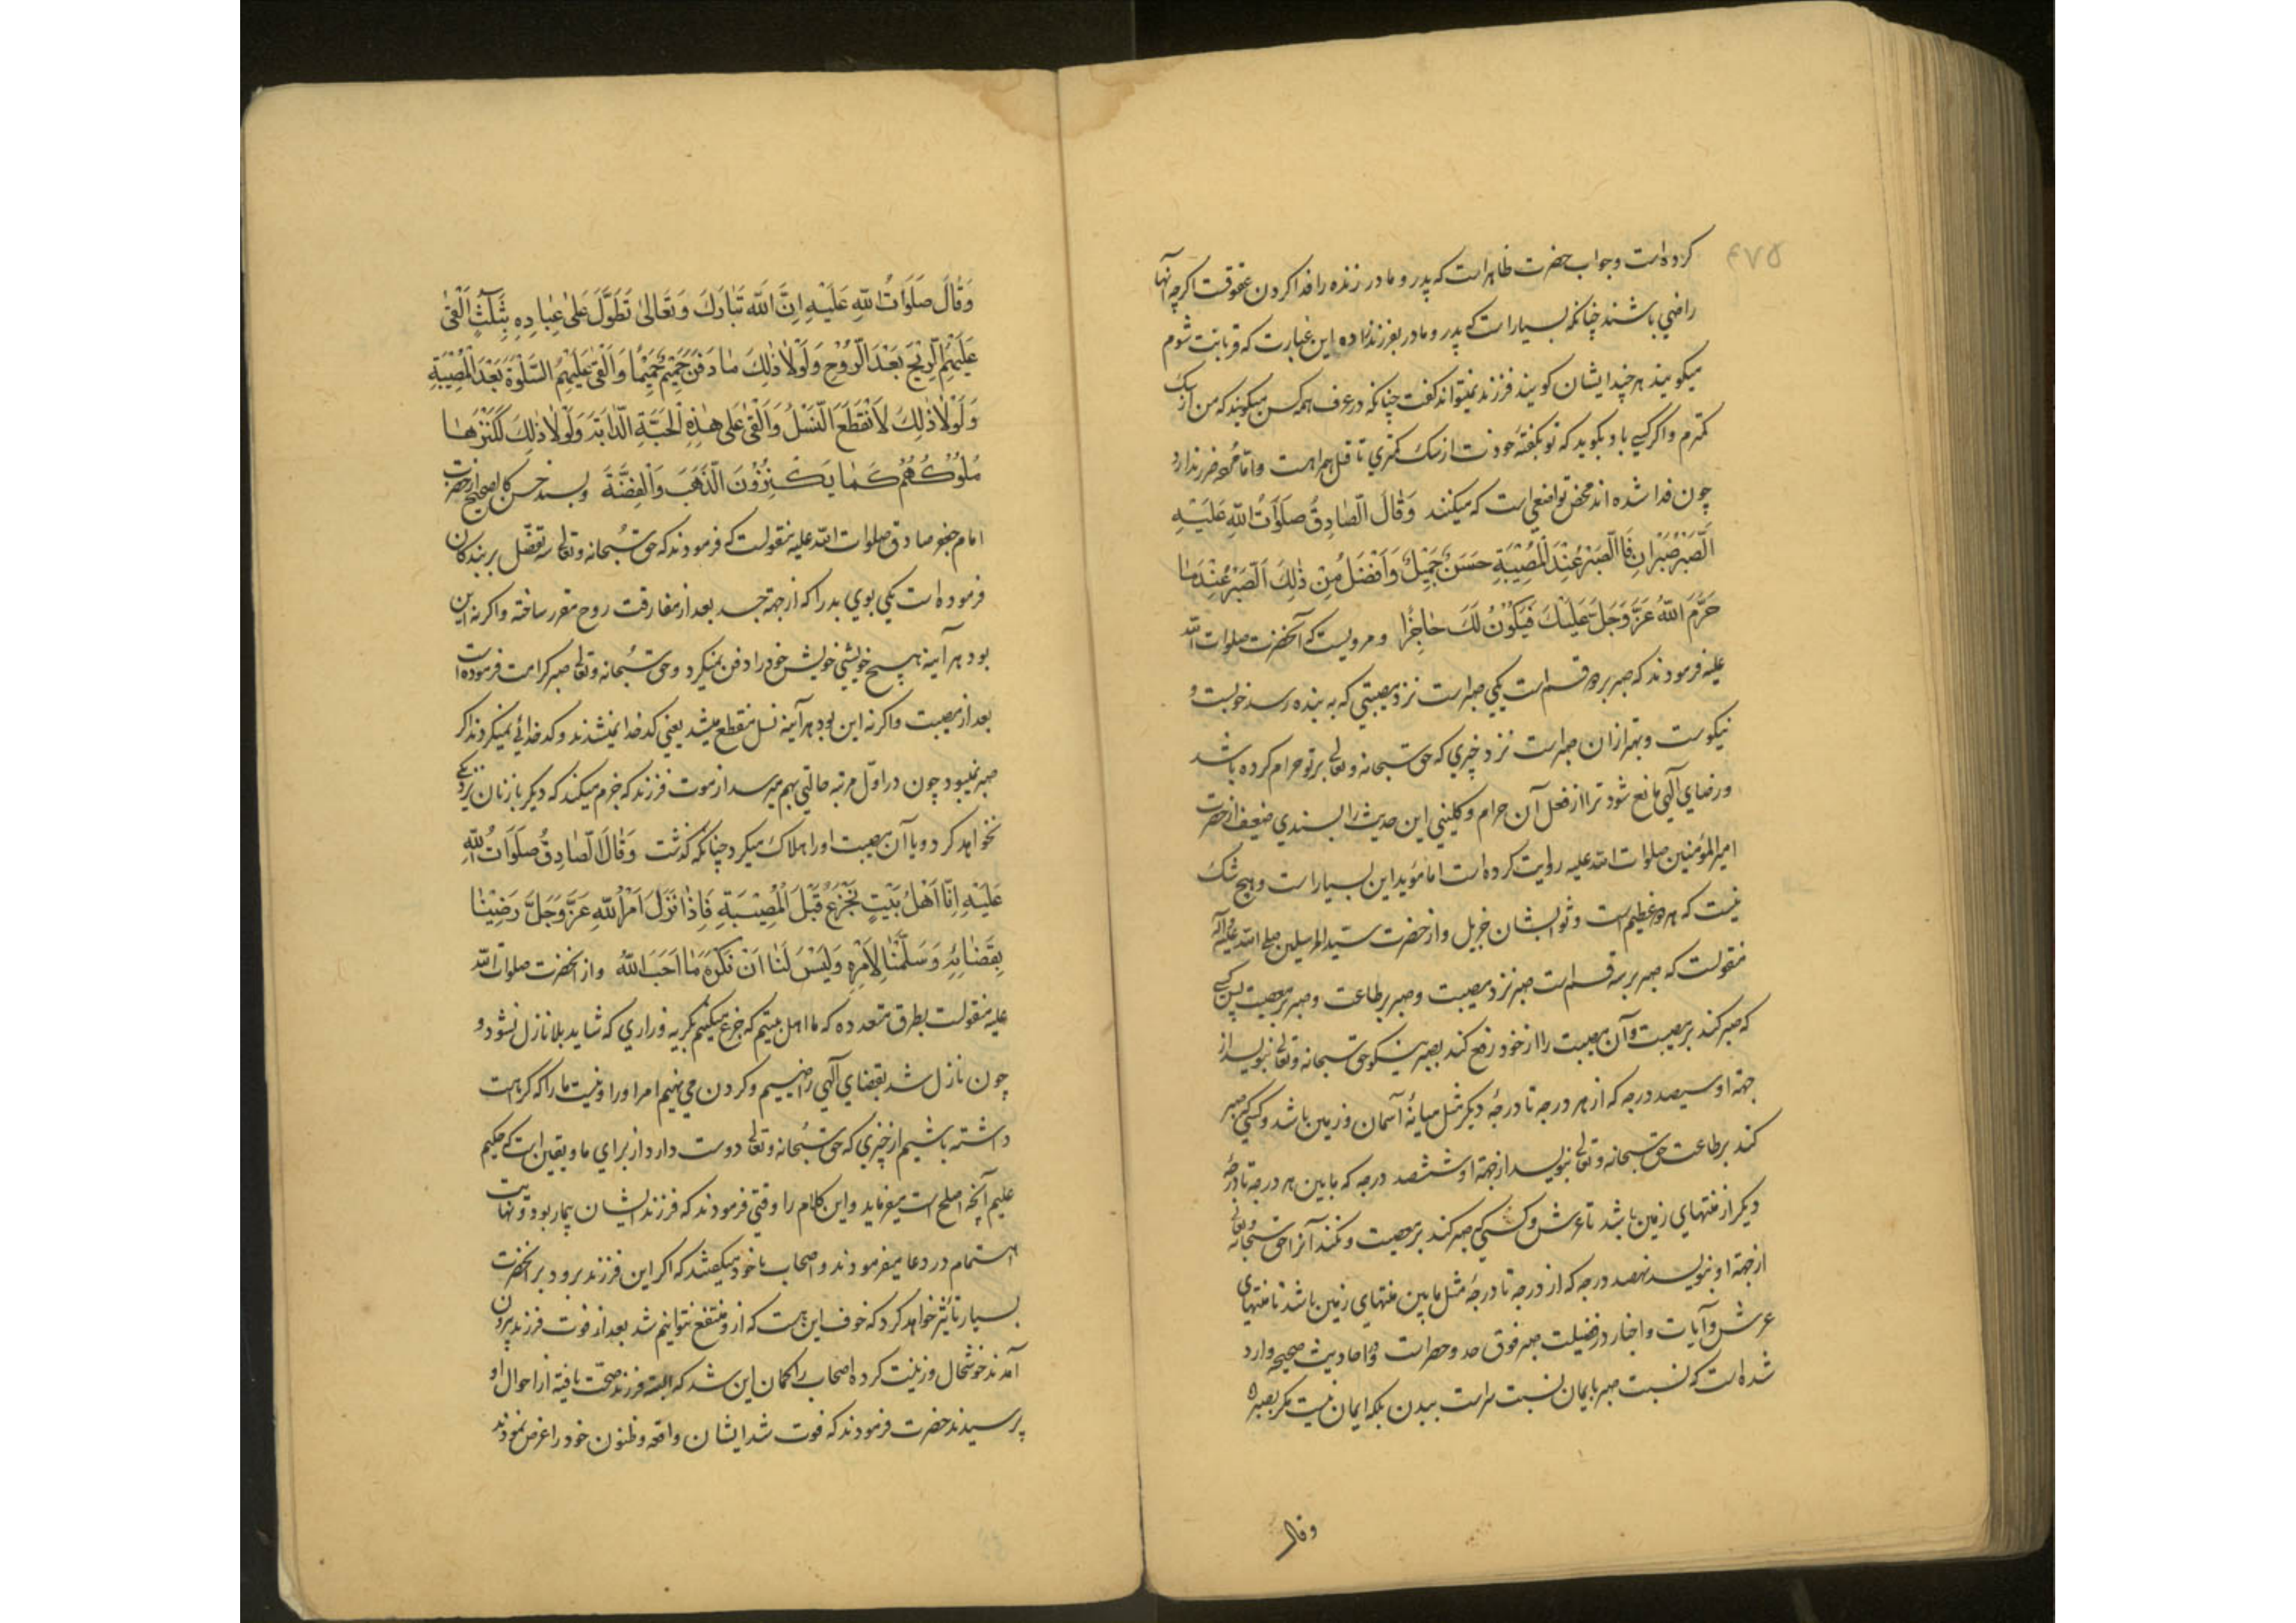 ۴۷۵
کرده است و جواب حضرت ظاهر است که پدر و مادر زنده را فدا کردن عقوقت اکرچه آنها
راضی باشند چنانکه بسیار است که پدر و مادر بفرزند زاده این عبارت که قربانت شوم
میکویند هر چند ایشان کویند فرزند نمیتواند کفت چنانکه در عرف همه کس میکویند که من از سک
کمترم و اکر کسی باو بکوید که تو بکفته خودت از سک کمتری تا قتل همراهست و اما مرده ضرر ندارد
چون فدا شده اند محض تواضعی است که میکنند وَقَالَ الصَّادِقُ صَلَوَاتُ اللّٰهِ عَلَيْهِ
اَلصَّبْرُ صَبْرَانِ فَالصَّبْرُ عِنْدَ الْمُصِيْبَةِ حَسَنٌ جَمِيْلٌ وَاَفْضَلُ مِنْ ذٰلِكَ اَلصَّبْرُ عِنْدَ مَا
حَرَّمَ اللّٰهُ عَزَّ وَجَلَّ عَلَيْكَ فَيَكُوْنُ لَكَ حَاجِزًا و مرویست که آنحضرت صلوات الله
علیه فرمودند که صبر بر دو قسم است یکی صبر است نزد مصیبتی که به بنده رسد خوبست و
نیکوست و بهتر از ان صبر است نزد چیزی که حق سبحانه و تعالی بر تو حرام کرده باشد
و رضای آلهی مانع شود ترا از فعل آن حرام و کلینی این حدیث را بسندی ضعیف از حضرت
امیر المؤمنین صلوات الله علیه روایت کرده است اما مؤید این بسیار است و هیچ شک
نیست که هر دو عظیم است و ثوابشان جزیل و از حضرت سید المرسلین صلی الله علیه و آله
منقولست که صبر بر سه قسم است صبر نزد مصیبت و صبر بر طاعت و صبر بر معصیت پس کسی
که صبر کند بر مصیبت و آن مصیبت را از خود رفع کند بصبر نیکو حق سبحانه و تعالی بنویسد از
جهة او سیصد درجه که از هر درجه تا درجۀ دیکر مثل میانۀ آسمان و زمین باشد و کسی که صبر
کند بر طاعت حق سبحانه و تعالی بنویسد از جهة او ششصد درجه که مابین هر درجه تا درجۀ
دیکر از منتهای زمین باشد تا عرش و کسی که صبر کند بر معصیت و نکند آنرا حق سبحانه و تعالی
از جهة او بنویسد نهصد درجه که از درجه تا درجۀ مثل مابین منتهای زمین باشد تا منتهای
عرش و آیات و اخبار در فضیلت صبر فوق حد و حصر است و در احادیث صحیحه وارد
شده است که نسبت صبر بایمان نسبت سر است ببدن بلکه ایمان نیست مکر بصبر
وقال
وَقَالَ صَلَوَاتُ اللّٰهِ عَلَيْهِ اِنَّ اللّٰهَ تَبَارَكَ وَتَعَالىٰ تَطَوَّلَ عَلىٰ عِبَادِهِ بِثَلٰثٍ اَلْقىٰ
عَلَيْهِمُ الرِّيْحَ بَعْدَ الرُّوْحِ وَلَوْلَا ذٰلِكَ مَا دَفَنَ حَمِيْمٌ حَمِيْمًا وَاَلْقىٰ عَلَيْهِمُ السَّلْوَةَ بَعْدَ الْمُصِيْبَةِ
وَلَوْلَا ذٰلِكَ لَانْقَطَعَ النَّسْلُ وَاَلْقىٰ عَلىٰ هٰذِهِ الْحَبَّةِ الدَّابَّةَ وَلَوْلَا ذٰلِكَ لَكَنَزَهَا
مُلُوْكُهُمْ كَمَا يَكْنِزُوْنَ الذَّهَبَ وَالْفِضَّةَ و بسند حسن کالصحیح از حضرت
امام جعفر صادق صلوات الله علیه منقولست که فرمودند که حق سبحانه و تعالی سه تفضل بر بندکان
فرموده است یکی بوی بد را که از جهة جسد بعد از مفارقت روح مقرر ساخته و اکر نه این
بود هر آینه هیچ خویشی خویش خود را دفن نمیکرد و حق سبحانه و تعالی صبر کرامت فرموده است
بعد از مصیبت و اکر نه این بود هر آینه نسل منقطع میشد یعنی کدخدا نمیشدند و کدخدائی نمیکردند اکر
صبر نمیبود چون در اوّل مرتبه حالتی بهم میرسد از موت فرزند که جزم میکند که دیکر با زنان نزدیکی
نخواهد کرد و یا آن مصیبت او را هلاک میکرد چنانکه کذشت وَقَالَ الصَّادِقُ صَلَوَاتُ اللّٰهِ
عَلَيْهِ اِنَّا اَهْلُ بَيْتٍ نَجْزَعُ قَبْلَ الْمُصِيْبَةِ فَاِذَا نَزَلَ اَمْرُ اللّٰهِ عَزَّ وَجَلَّ رَضِيْنَا
بِقَضَائِهِ وَسَلَّمْنَا لِاَمْرِهِ وَلَيْسَ لَنَا اَنْ نَكْرَهَ مَا اَحَبَّ اللّٰهُ و از آنحضرت صلوات الله
علیه منقولست بطرق متعدده که ما اهل بیتیم که جزع میکنیم بکریه و زاری که شاید بلا نازل نشود و
چون نازل شد بقضای آلهی راضییم و کردن می نهیم امر او را و نیست ما را که کراهت
داشته باشیم از چیزی که حق سبحانه و تعالی دوست دارد از برای ما و یقین است که حکیم
علیم آنچه اصلح است میفرماید و این کلام را وقتی فرمودند که فرزند ایشان بیمار بود و نهایت
اهتمام در دعا میفرمودند و اصحاب با خود میکفتند که اکر این فرزند برود بر آنحضرت
بسیار تأثیر خواهد کرد که خوف این هست که از و منتفع نتوانیم شد بعد از فوت فرزند بیرون
آمدند خوشحال و زینت کرده اصحاب را کمان این شد که البته فرزند صحت یافته از احوال او
پرسیدند حضرت فرمودند که فوت شد ایشان واقعه و ظنون خود را عرض نمودند